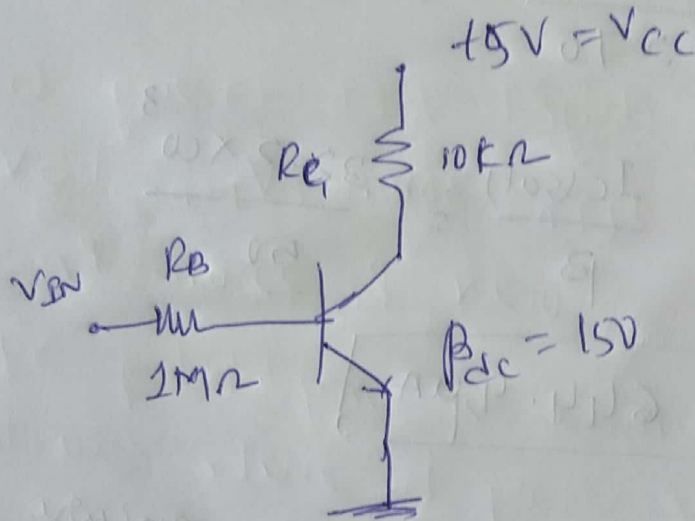 +5V = VCC
RC 10KΩ
RB
VIN
1MΩ
βdc = 150